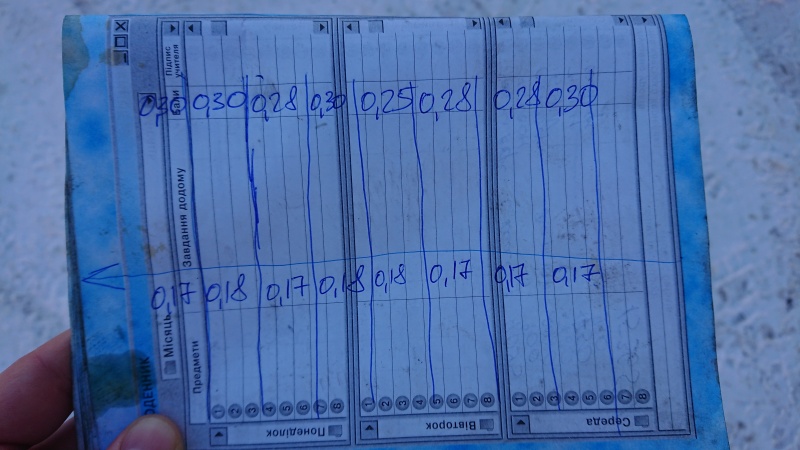 0,30 0,30 0,28 0,30 0,25 0,28 0,28 0,30
0,17 0,18 0,17 0,18 0,18 0,17 0,17 0,17
ОДЕННИК
Місяць
Предмети
Завдання додому
Бали
Підпис учителя
Понеділок
1
2
3
4
5
6
7
8
Вівторок
1
2
3
4
5
6
7
8
Середа
1
2
3
4
5
6
7
8